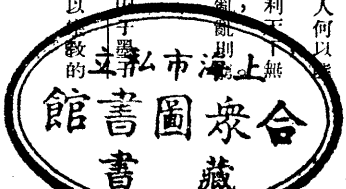 人何以
利天下無
亂則
子墨子
教的
上海市私立
合衆圖書館
藏書